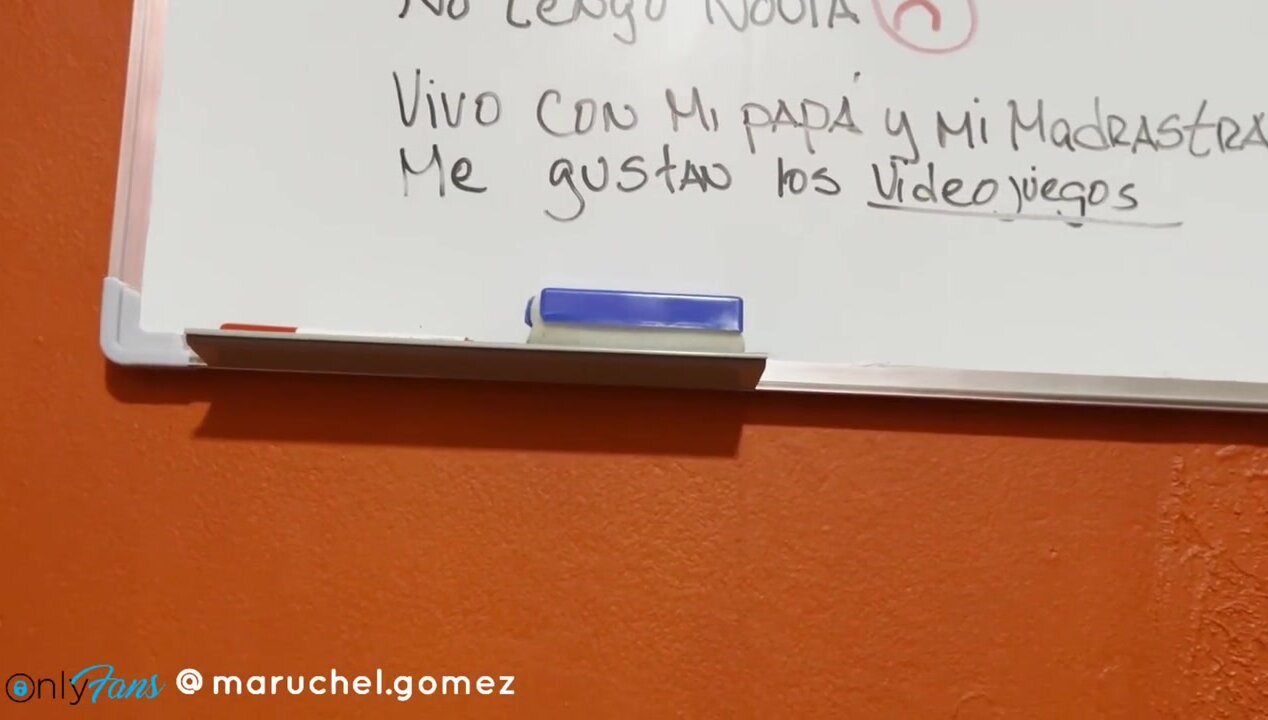 No tengo NOVIA
Vivo CON Mi PAPÁ y Mi MadRAStRA
Me gustAN los Videojuegos
OnlyFans @maruchel.gomez